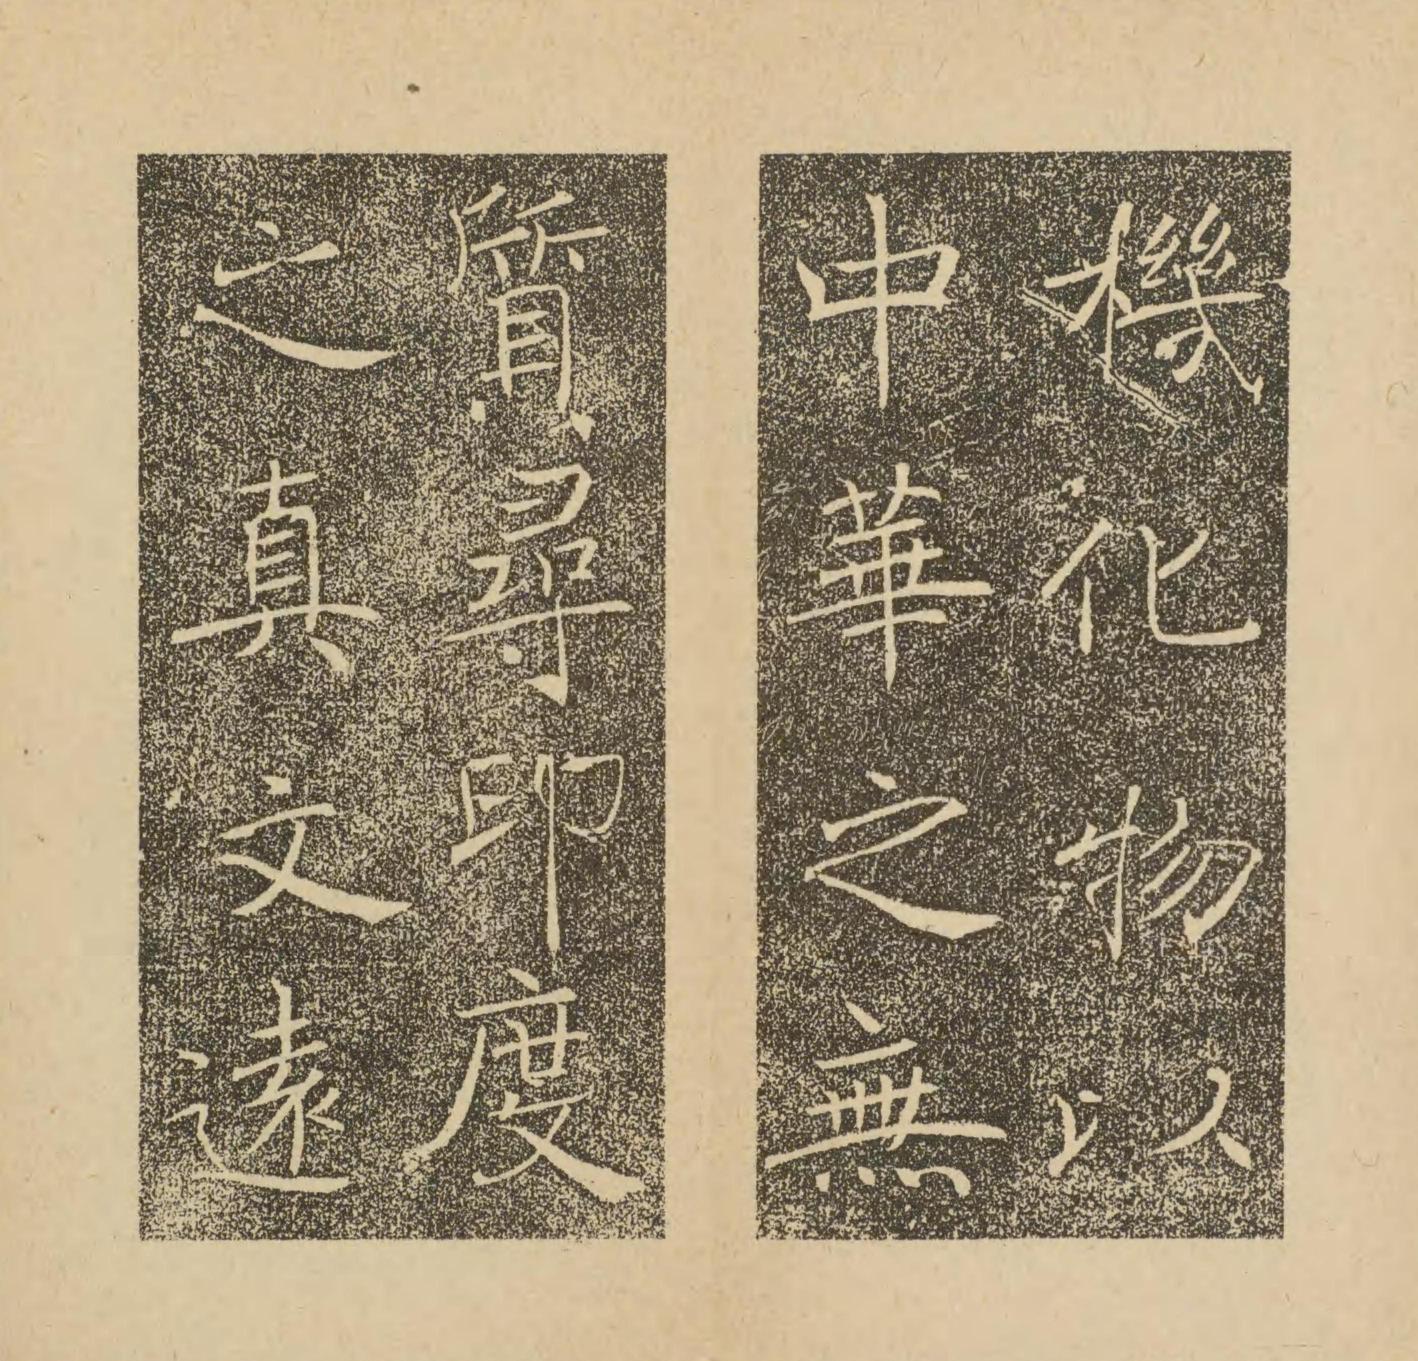 機化物以
中華之無
質尋印度
之真文遠